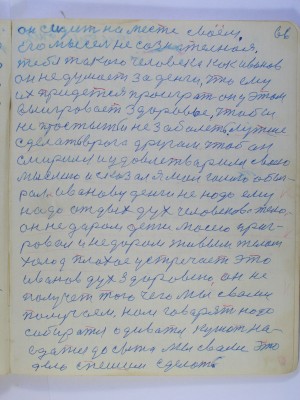 66
он сидит на месте своём,
его мысел не сознателная,
тебя такого человека как иванов
он не думает за денги, то ему
их придется проиграт он у этом
выигровает здоровье, чтоби
не простыть и не заболеть лутше
сделать врага другам чтоб он
смирился удовлетварился своею
мыслию и сказал я мол
Иванову денги не надо ему
надо отдых дух человеков
он не даром дети моего
и не даром
холод плохое устричает это
иванов дух здоровено он не
получает того чего мы своим
получаем, нам говарят надо
сабиратя одиватя кушот на-
едатя до сыта мы свами это
дело спешим сделать